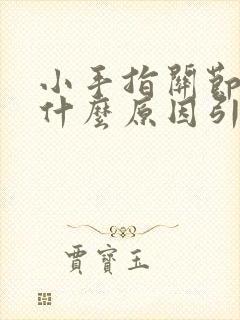 小手指關節
什麼原因引
賈寶玉